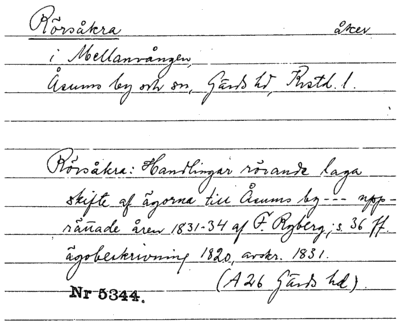 Rörsåkra åker
i Mellanvången
Åsums by och sn, Gärds hd, Krstd. l.
Rörsåkra: Handlingar rörande laga
skifte af ägorna till Åsums by --- upp-
rättade åren 1831-34 af F. Ryberg, s. 36 ff.
ägobeskrivning 1820, avskr. 1831.
(A 26 Gärds hd).
Nr 5344.